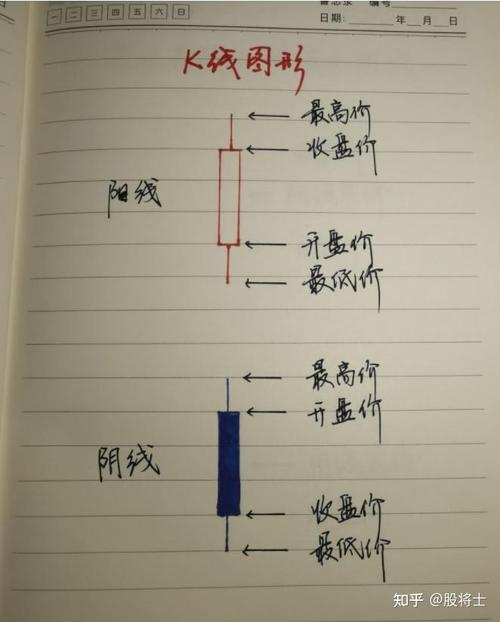 备忘录 编号
一 二 三 四 五 六 日
日期: 年 月 日
K线图形
最高价
收盘价
阳线
开盘价
最低价
最高价
开盘价
阴线
收盘价
最低价
知乎 @股将士